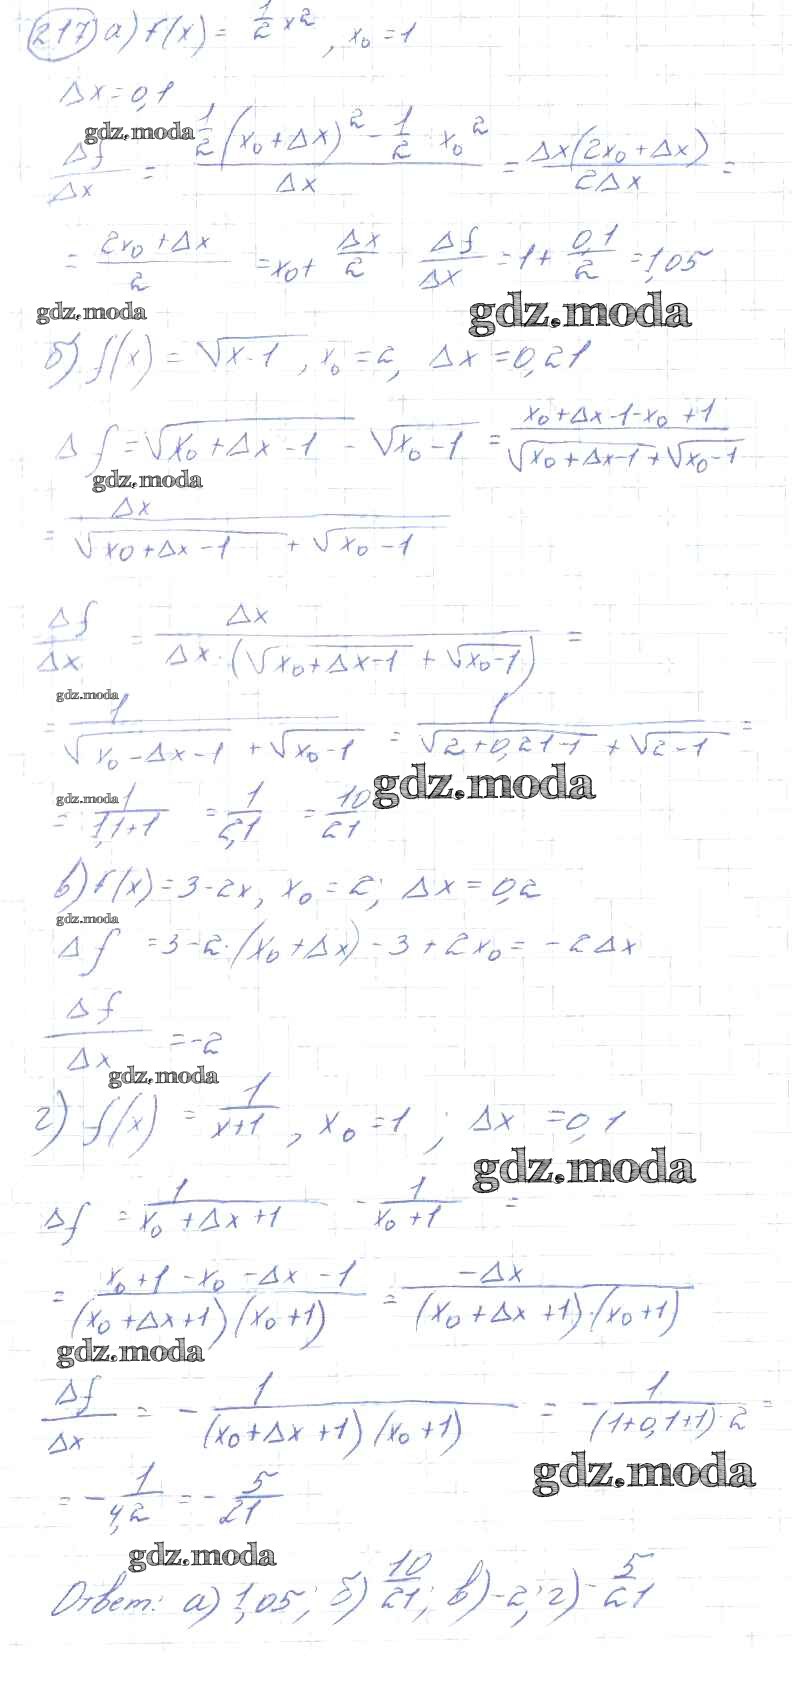 217) а) f(x) = 1/2 x², x₀ = 1
Δx = 0,1
gdz.moda
Δf/Δx = (1/2 (x₀ + Δx)² - 1/2 x₀²)/Δx = Δx(2x₀ + Δx)/2Δx =
= (2x₀ + Δx)/2 = x₀ + Δx/2 Δf/Δx = 1 + 0,1/2 = 1,05
gdz.moda gdz.moda
б) f(x) = √(x-1), x₀ = 2, Δx = 0,21
Δf = √(x₀ + Δx - 1) - √(x₀ - 1) = (x₀ + Δx - 1 - x₀ + 1)/(√(x₀ + Δx - 1) + √(x₀ - 1))
gdz.moda
= Δx/(√(x₀ + Δx - 1) + √(x₀ - 1))
Δf/Δx = Δx/(Δx · (√(x₀ + Δx - 1) + √(x₀ - 1))) =
gdz.moda
= 1/(√(x₀ - Δx - 1) + √(x₀ - 1)) = 1/(√(2 + 0,21 - 1) + √(2 - 1)) =
gdz.moda gdz.moda
= 1/(1,1 + 1) = 1/2,1 = 10/21
в) f(x) = 3 - 2x, x₀ = 2; Δx = 0,2
gdz.moda
Δf = 3 - 2·(x₀ + Δx) - 3 + 2x₀ = -2Δx
Δf/Δx = -2
gdz.moda
г) f(x) = 1/(x+1), x₀ = 1; Δx = 0,1
gdz.moda
Δf = 1/(x₀ + Δx + 1) - 1/(x₀ + 1) =
= (x₀ + 1 - x₀ - Δx - 1)/((x₀ + Δx + 1)(x₀ + 1)) = -Δx/((x₀ + Δx + 1)·(x₀ + 1))
gdz.moda
Δf/Δx = - 1/((x₀ + Δx + 1)(x₀ + 1)) = - 1/((1 + 0,1 + 1)·2) =
gdz.moda
= - 1/4,2 = - 5/21
gdz.moda
Ответ: а) 1,05; б) 10/21; в) -2; г) - 5/21